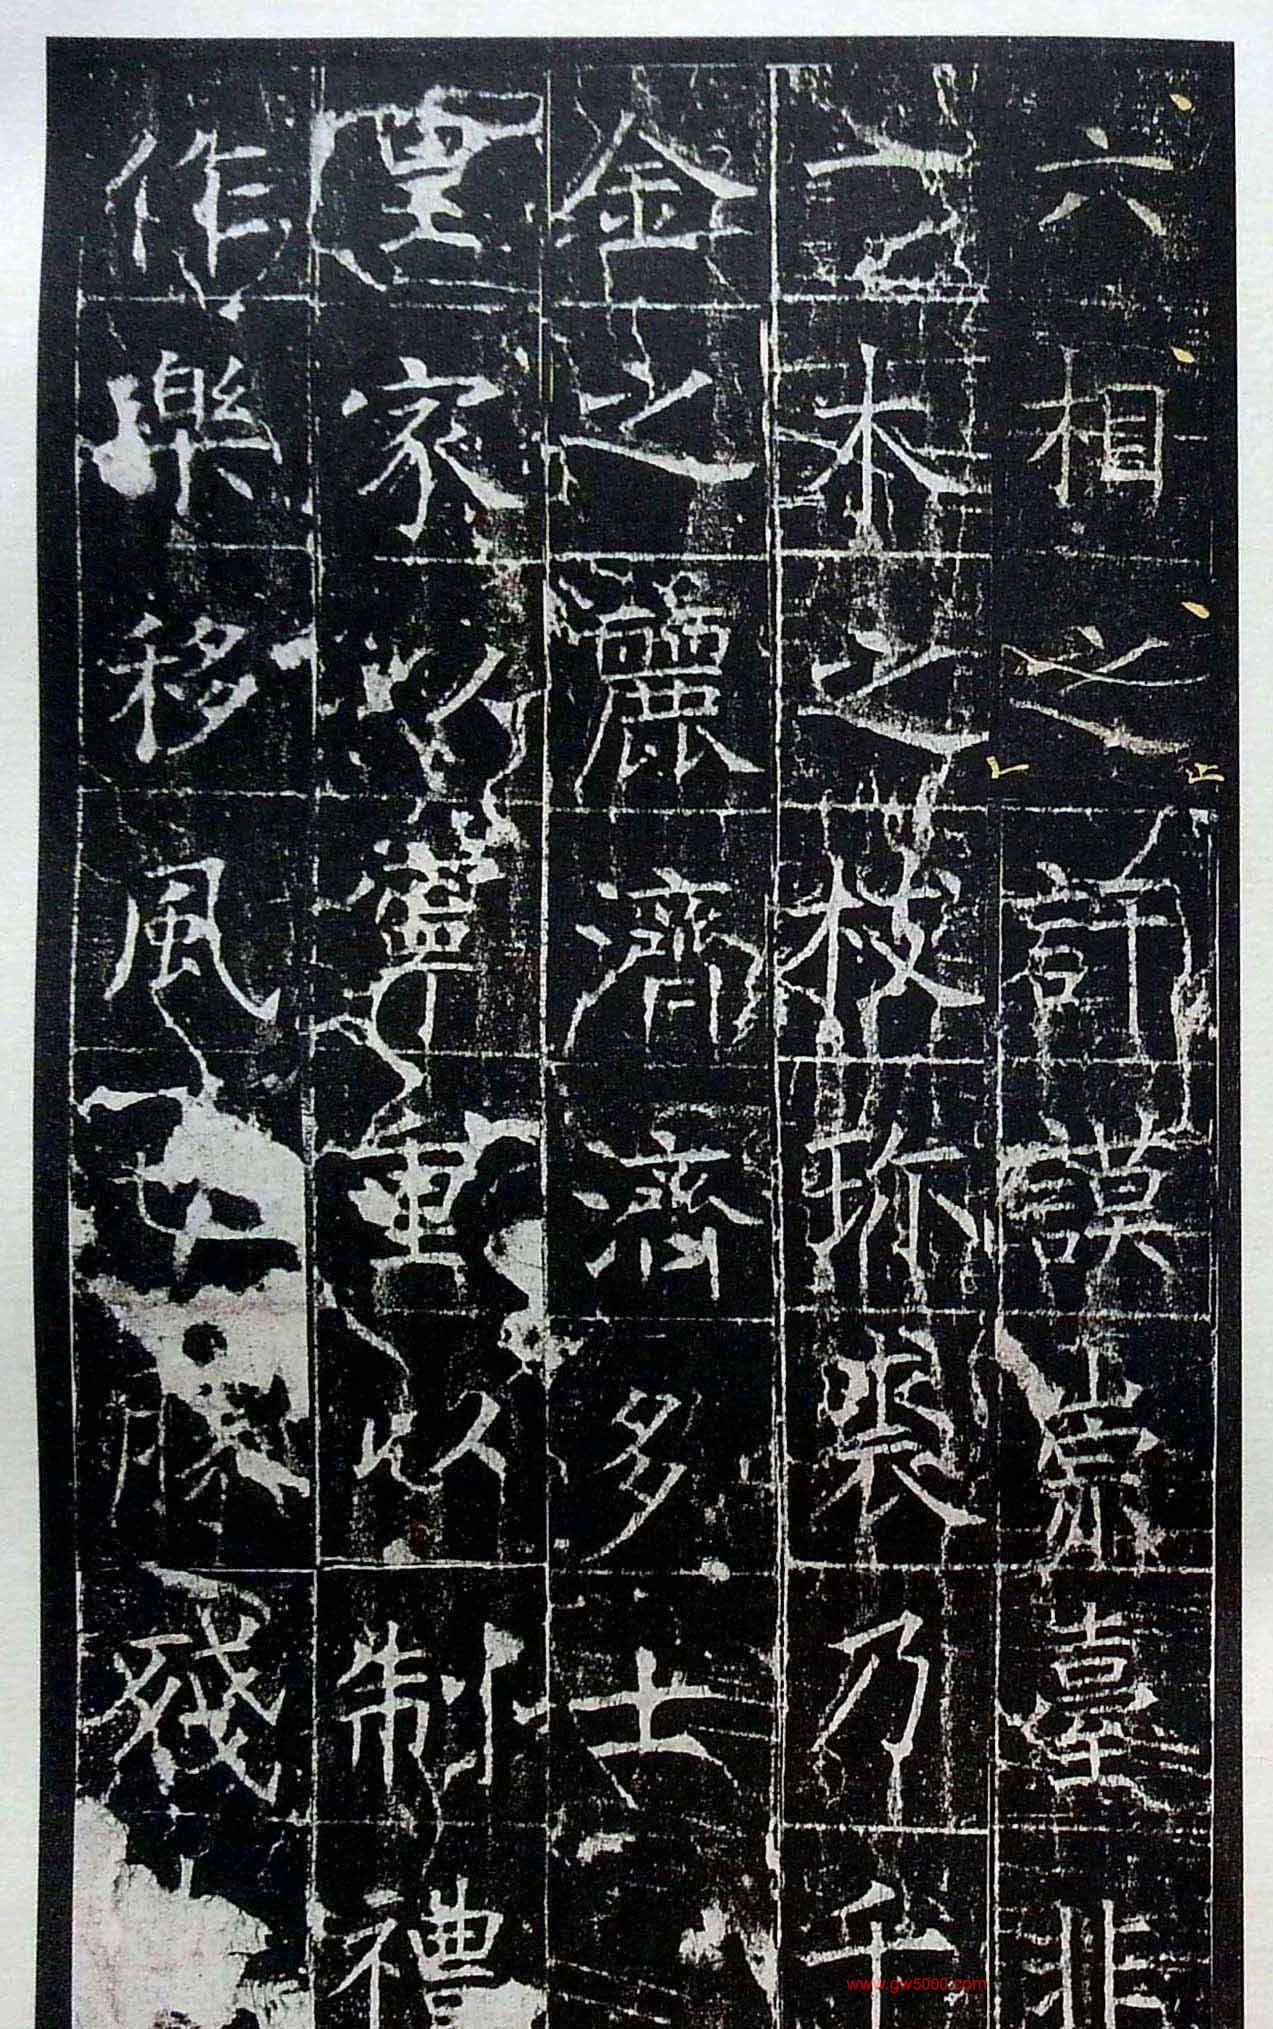 六相之訏謨崇臺非
一木之枝珎裘乃千
金之麗濟濟多士
皇家以寧重以制禮
作樂移風勝殘
www.gw5000.com